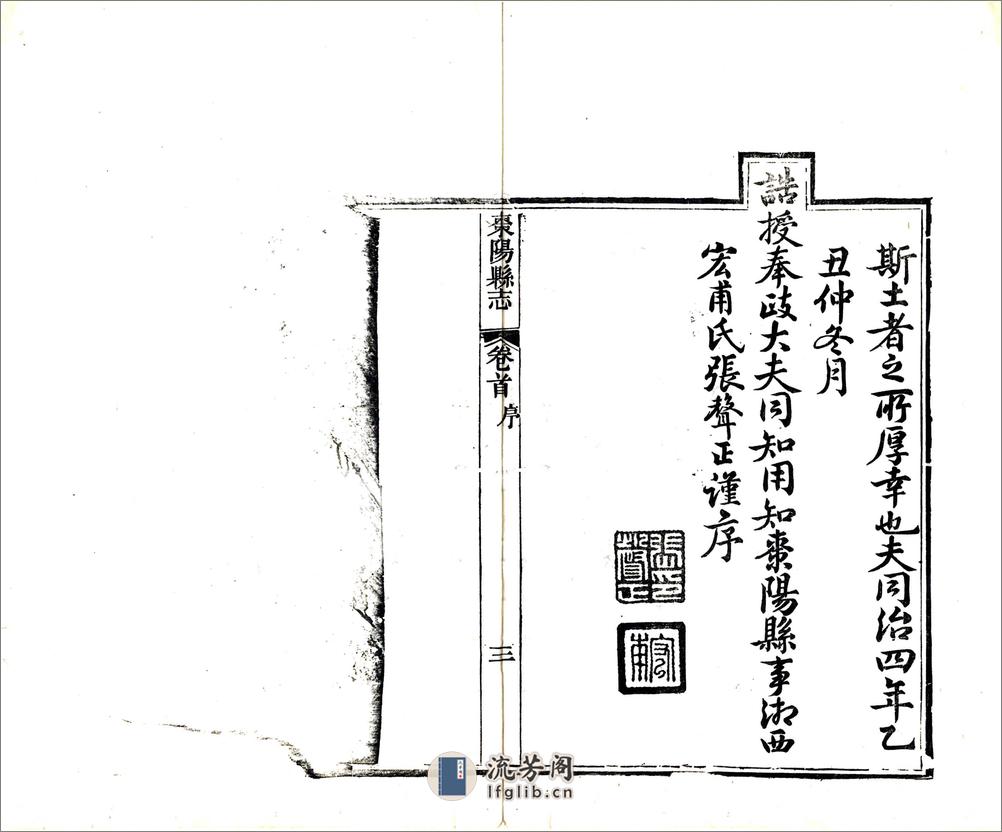 斯土者之所厚幸也夫同治四年乙
丑仲冬月
誥授奉政大夫同知用知棗陽縣事湘西
宏甫氏張聲正謹序
棗陽縣志
卷首
序
三
流芳阁
lfglib.cn